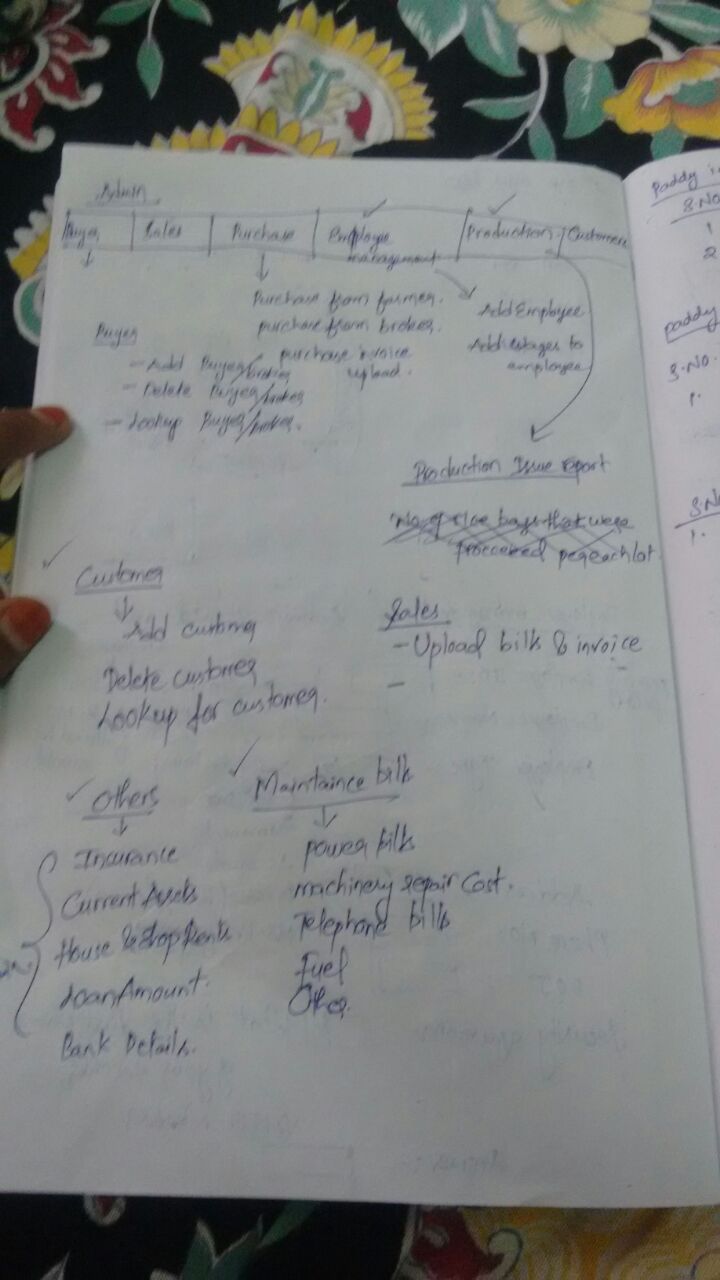 Admin
Buyer Sales Purchase Employee management Production Customers
Purchase from farmer.
purchase from broker.
purchase invoice upload.
Add Employee
Add wages to employee
Buyer
- Add Buyer/broker
- Delete Buyer/broker
- Lookup Buyer/broker.
Production Issue report
No of rice bags that were
processed per each lot.
Customer
Add customer
Delete customer
Lookup for customer.
Sales
- Upload bills & invoice
-
Others
Insurance
Current Assets
House & shop Rents
Loan Amount.
Bank Details.
Maintaince bills
power bills
machinery repair cost.
Telephone bills
Fuel
Other.
Paddy
S.No
1
2
paddy
S.No.
1.
S.No
1.